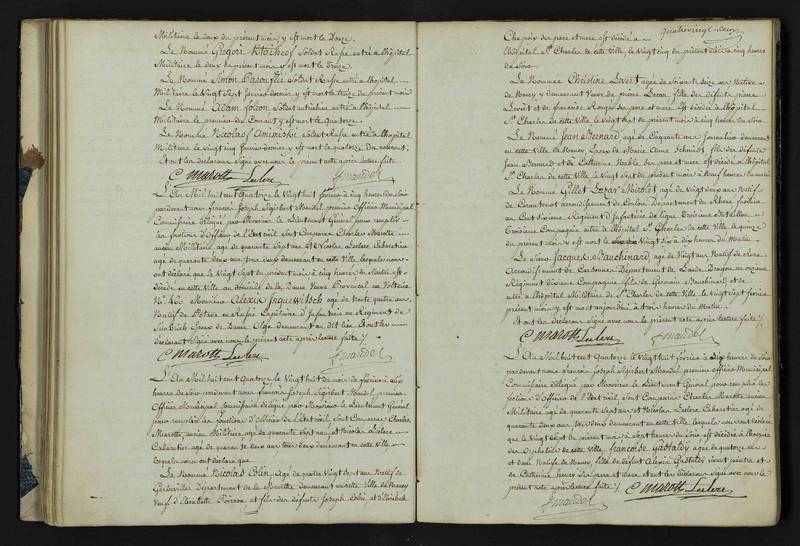 Militaire le deux du présent mois, y est mort le Douze.
Le Nommé Grégori Soldat Russe entré à l'hôpital
Militaire le deux du présent mois y est mort le Treize.
Le Nommé Simon Soldat Russe entré à l'hôpital
Militaire le Vingt Sept Janvier dernier y est mort le treize du présent mois
Le Nommé Adam Soldat autrichien entré à l'hôpital
Militaire le premier du Courant y est mort le quatorze
Le Nommé Nicolas Soldat Russe entré à l'hôpital
Militaire le Vingt Janvier dernier y est mort le quatorze du courant,
Et ont les déclarans Signé avec nous le présent acte après lecture faite
C Marotte Leclerc Mandel
L'An Mil huit cent Quatorze le Vingt huit février à cinq heures du Soir
pardevant nous françois Joseph Sigisbert Mandel premier Officier Municipal
Commissaire délégué par Monsieur le Lieutenant Général pour remplir
les fonctions d'Officier de l'Etat civil, Sont Comparus Charles Marotte
ancien Militaire, agé de quarante Sept ans et Nicolas Leclerc Cabaretier
agé de quarante deux ans tous deux demeurant en cette Ville lesquels nous
ont déclaré que le Vingt Sept du présent mois à cinq heures du Matin est
décédé en cette Ville au domicile de la Dame Veuve Provencal rue Voltaire
No. Monsieur Alexis agé de trente quatre ans
Natif de en Russie Capitaine d'Infanterie au Régiment de
Epoux de Dame Olga demeurant au dit lieu. Et ont les
déclarans Signé avec nous le présent acte après lecture faite /.
C Marotte Leclerc Mandel
L'An Mil huit cent Quatorze le Vingt huit du mois de février à Six
heures du Soir pardevant nous françois Joseph Sigisbert Mandel, premier
Officier Municipal Commissaire délégué par Monsieur le Lieutenant Général
pour remplir les fonctions d'Officier de l'Etat civil, Sont Comparus Charles
Marotte, ancien Militaire agé de quarante Sept ans, et Nicolas Leclerc
Cabaretier agé de quarante deux ans tous deux demeurant en cette Ville
lesquels nous ont déclaré que
Le Nommé Nicolas Colin, agé de quatre Vingt Sept ans Natif de
Gerbeviller Département de la Meurthe demeurant en cette Ville de Nancy
veuf d'Elisabeth Poirson, et fils des défunts Joseph Colin, et d'Elisabeth
quatrevingt-deux
Ses père et mère est décédé à
l'hôpital St. Charles de cette Ville, le Vingt cinq du présent mois à cinq heures
du Soir.
La Nommée Christine Levert agée de Soixante Seize ans Native
de Nancy y demeurant Veuve de pierre fille des défunts pierre
Levert et de françoise Rougir Ses père et mère. est décédée à l'hôpital
St. Charles de cette Ville, le Vingt Sept du présent mois à cinq heures du Soir
Le Nommé Jean Bernard, agé de Cinquante ans Journalier demeurant
en cette Ville de Nancy, Epoux de Marie Anne Schmidt fils des défunts
Jean Bernard et de Catherine Ses père et mère est décédé à l'hôpital
St. Charles de cette Ville, le Vingt Sept du présent mois à Neuf heures du matin
Le Nommé Gillet Lazar Nicolas agé de Vingt deux ans Natif
de arrondissement de Département du Rhône fusilier
au Cent Sixième Régiment d'Infanterie de ligne, Troisième Bataillon
Troisième Compagnie entré à l'hôpital St. Charles de cette Ville le quinze
du présent mois y est mort le Vingt Six à dix heures du Matin.
Le Sieur Jacques Bauchinard, agé de Vingt ans Natif de
Arrondissement de Carcassonne Département de l'aude Dragon au onzième
Régiment dixième Compagnie, fils de Germain Bauchinard et de
entré à l'hôpital Militaire de St. Charles de cette Ville le Vingt février
présent mois y est mort aujourd'hui à trois heures du Matin.
Et ont les déclarans Signé avec nous le présent acte après lecture faite /.
C Marotte Leclerc Mandel
L'An Mil huit cent Quatorze le Vingt huit février à Six heures du Soir
pardevant nous françois Joseph Sigisbert Mandel, premier officier Municipal
Commissaire délégué par Monsieur le Lieutenant Général pour remplir les
fonctions d'Officier de l'Etat civil, Sont Comparus Charles Marotte ancien
Militaire agé de quarante Sept ans et Nicolas Leclerc Cabaretier agé de
quarante deux ans tous deux demeurant en cette Ville lesquels nous ont déclaré
que le Vingt Sept du présent mois à Sept heures du Soir est décédée à l'hospice
des Orphelins de cette Ville, françoise Gastaldy agée de quatorze ans
et demi Native de Nancy, fille de défunt Alexis Gastaldy vivant peintre et
de Catherine Ses père et mère et ont les déclarans Signé avec nous le
présent acte après lecture faite /.
Mandel C Marotte Leclerc